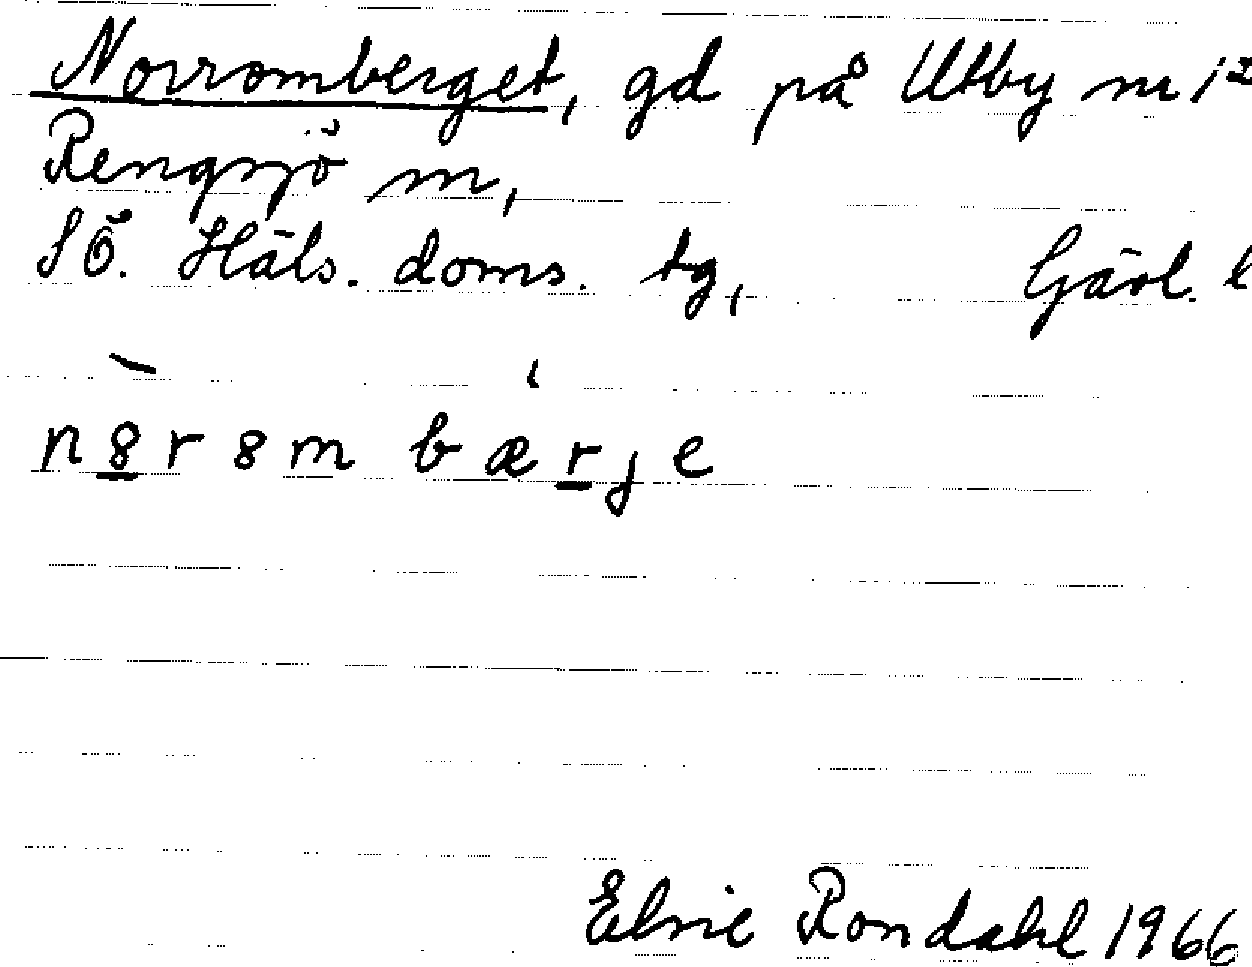 Norromberget, gd på Utby nr 1²
Rengsjö sn,
SÖ. Häls. doms. tg, Gävl. l
n8r8m bærje
Elsie Rondahl 1966